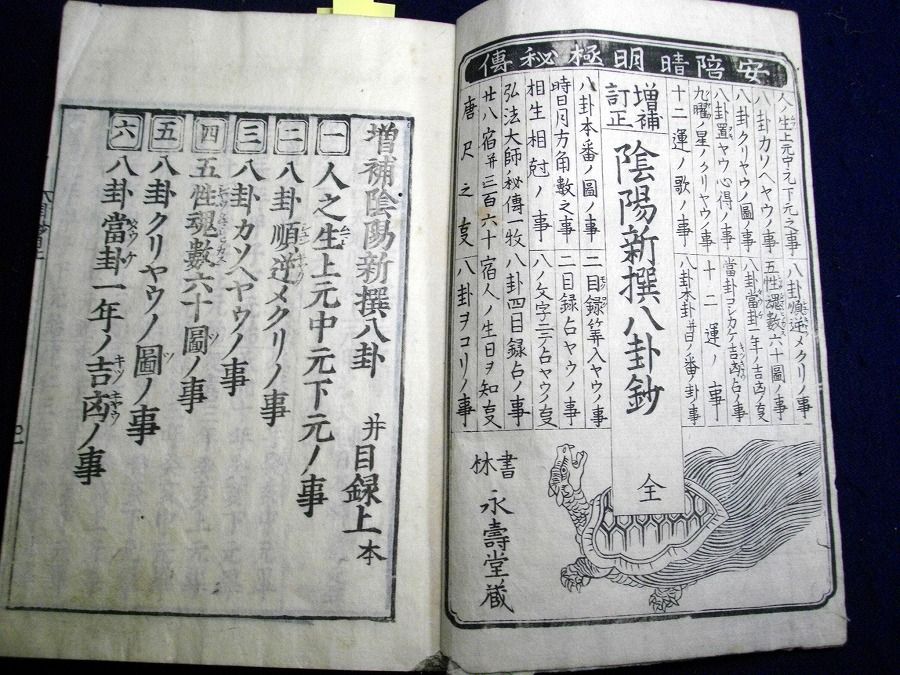 安陪晴明極秘傳
人ノ生上元中元下元之事
八卦カソヘヤウノ事
八卦クリヤウノ圖ノ事
八卦置ヤウ心得ノ事
九曜ノ星ノクリヤウノ事
十二運ノ歌ノ事
八卦順逆メクリノ事
五性魂數六十圖ノ事
八卦當卦一年ノ吉凶ノ支
當卦ヲシカケ吉凶占ノ事
十二運ノ事
八卦本卦并日ノ番ノ卦事
増補
訂正
陰陽新撰八卦鈔
全
八卦本番ノ圖ノ事
時日月方角數之事
相生相尅ノ事
弘法大師ノ秘傳一牧
廿八宿并三百六十
唐尺之支
二目録筭入ヤウノ事
二目録占ヤウノ事
八ノ文字ニテ占ヤウノ支
八卦四目録占ノ事
宿人ノ生日ヲ知支
八卦ヲコリノ事
書林
永壽堂蔵
増補陰陽新撰八卦 并目録上本
一 人之生上元中元下元ノ事
二 八卦順逆メクリノ事
三 八卦カソヘヤウノ事
四 五性魂數六十圖ノ事
五 八卦クリヤウノ圖ノ事
六 八卦當卦一年ノ吉凶ノ事